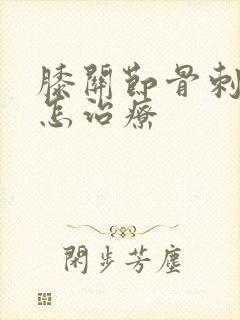 膝關節骨刺
怎治療
閑步芳塵